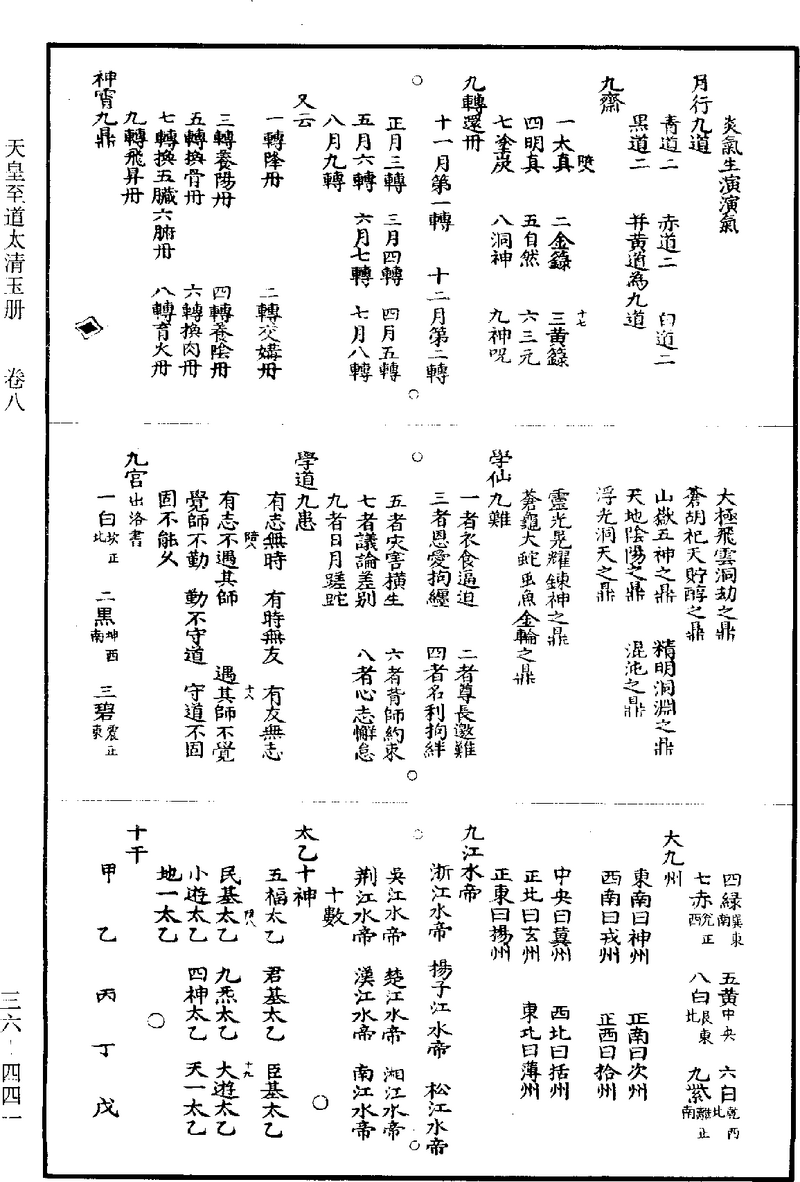 炎氣生演演氣
月行九道
青道二　赤道二　白道二
黑道二　并黃道為九道
九齋
一太真　二金籙　三黃籙
四明真　五自然　六三元
七塗炭　八洞神　九神呪
九轉還丹
十一月第一轉　十二月第二轉
正月三轉　三月四轉　四月五轉
五月六轉　六月七轉　七月八轉
八月九轉
又云
一轉降丹　二轉交媾丹
三轉養陽丹　四轉養陰丹
五轉換骨丹　六轉換肉丹
七轉換五臟六腑丹　八轉育火丹
九轉飛昇丹
神霄九鼎
大極飛雲洞劫之鼎
蒼胡祀天貯醇之鼎
山嶽五神之鼎　精明洞淵之鼎
天地陰陽之鼎　混沌之鼎
浮光洞天之鼎
靈光晃耀鍊神之鼎
蒼龜大蛇虫魚金輪之鼎
学仙九難
一者衣食逼迫　二者尊長邀難
三者恩愛拘纏　四者名利拘絆
五者災害橫生　六者背師約束
七者議論差别　八者心志懈怠
九者日月蹉跎
學道九患
有志無時　有時無友　有友無志
有志不遇其師　遇其師不覺
覺師不勤　勤不守道　守道不固
固不能久
九宮出洛書
一白坎正北　二黑坤西南　三碧震正東
四緑巽東南　五黃中央　六白乾西北
七赤兊正西　八白艮東北　九紫離正南
大九州
東南曰神州　正南曰次州
西南曰戎州　正西曰拾州
中央曰冀州　西北曰括州
正北曰玄州　東北曰薄州
正東曰揚州
九江水帝
浙江水帝　揚子江水帝　松江水帝
吳江水帝　楚江水帝　湘江水帝
荆江水帝　漢江水帝　南江水帝
十數
太乙十神
五福太乙　君基太乙　臣基太乙
民基太乙　九炁太乙　大遊太乙
小遊太乙　四神太乙　天一太乙
地一太乙
十干
甲　乙　丙　丁　戊
十七
十八
十九
天皇至道太清玉册　卷八
三六-四四一